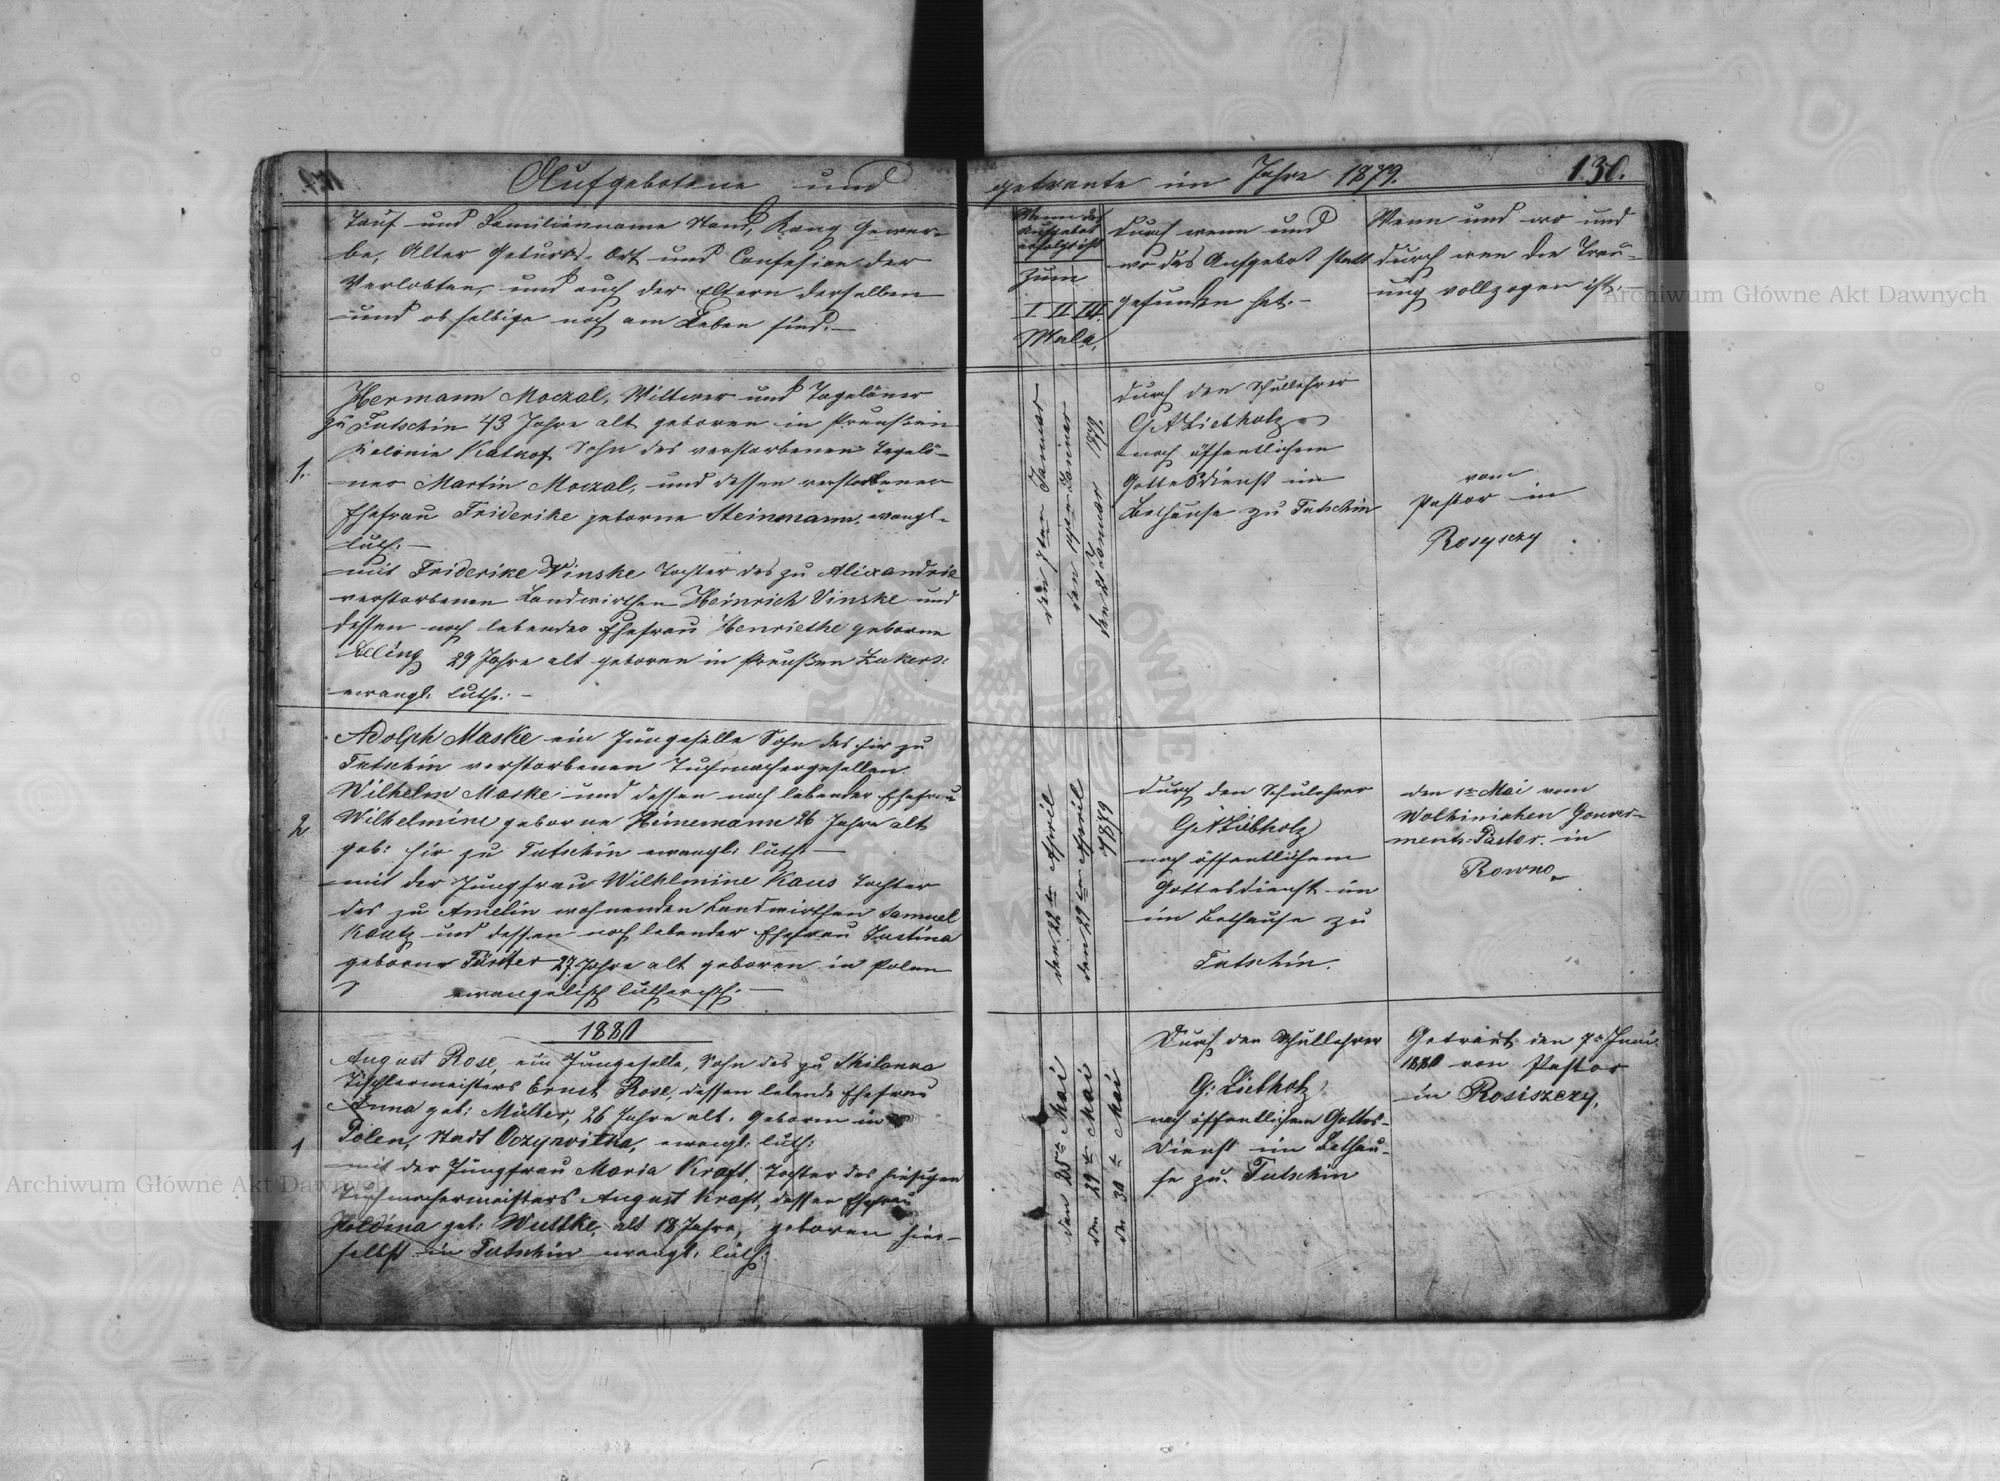 Aufgebotene und getraute im Jahre 1879.
130.
Tauf und Familienname Stand, Rang Gewer-
be, Alter Geburts-Ort und Confesion der
Verlobten, und auch der Eltern derselben
und ob selbige noch am Leben sind.-
Wenn das
Aufgebot
erfolgt ist
zum
I II III
Male.
Durch wenn und
wo das Aufgebot statt
gefunden hat.-
Wenn und wo und
durch wen die Trau-
ung vollzogen ist.-
1.
Hermann Moczal, Wittwer und Tagelöner
zu Tutschin 43 Jahre alt geboren in Preußen
Kolonie Sohn des verstorbenen Tagelö-
ner Martin Moczal, und dessen verstorbener
Ehefrau Friderike geborne Steinmann, evangl-
luth.-
mit Friderike Vinske Tochter des zu Alixandrie
verstorbenen Landwirthen Heinrich Vinske und
dessen noch lebender Ehefrau Henriethe geborne
29 Jahre alt geboren in Preußen
evangl. luth.-
den 7ten Januar
den 14ten Januar
den 21 Januar 1879.
durch den Schullehrer
G A Liebholz
nach öffentlichem
Gottesdienst im
Bethause zu Tutschin
vom
Pastor in
Rosyszy
2
Adolph Maske ein Jungeselle Sohn des hir zu
Tutschin verstorbenen Tuchmachergesellen
Wilhelm Maske und dessen noch lebender Ehefrau
Wilhelmine geborne Heinemann 26 Jahre alt
geb: hir zu Tutschin evangl: luth:-
mit der Jungfrau Wilhlmine Kaus Tochter
des zu Amelin wohnenden Landwirthen Samuel
Kautz und dessen noch lebender Ehefrau Justina
geborne 27 Jahre alt geboren in Polen
evangelisch lutherisch.-
den 22ten April
den 29ten April
1879
durch den Schulehrer
G A Liebholz
nach öffentlichem
Gottesdienst im
im Bethause zu
Tutschin.
den 1ten Mai vom
Wolhinishen Gouver-
ments-Pastor. in
Rowno
1880
1
August Rose, ein Jungeselle, Sohn des zu
Tischlermeisters Ernst Rose, dessen lebende Ehefrau
Anna geb: Müller, 26 Jahre alt. Geboren in
Polen, Stadt evangl: luth:
mit der Jungfrau Maria Kraft, Tochter des hiesigen
Tuchmachermeisters August Kraft, dessen Ehefrau
geb: Wuttke, alt 18 Jahre, geboren hier-
selbst in Tutschin evangl: luth:
den 25ten Mai
den 29ten Mai
den 30ten Mai
Durch den Schullehrer
G: Liebholz
nach öffentlichem Gottes-
dienst im Bethau-
se zu. Tutschin
Getraut den 7ten Juni
1880 von Pastor
in Rosiszczy.
Archiwum Główne Akt Dawnych
Archiwum Główne Akt Dawnych